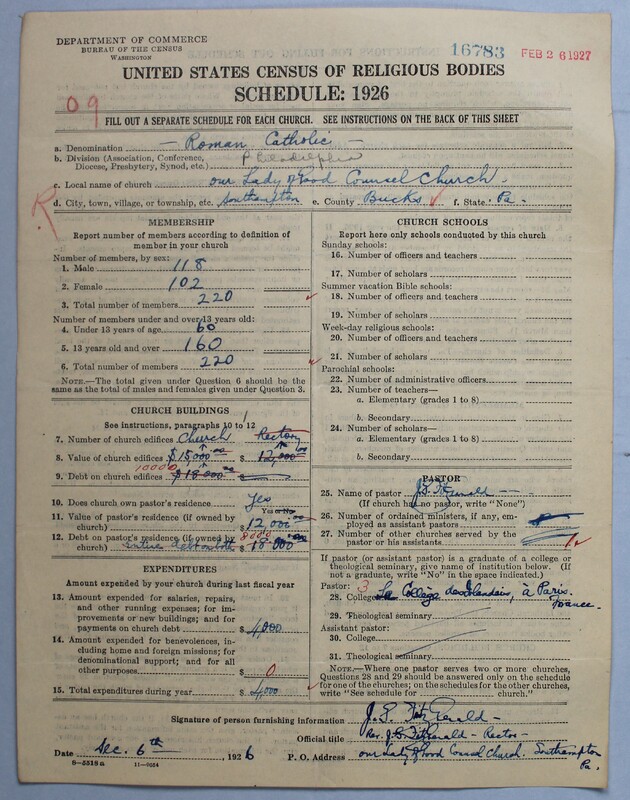 DEPARTMENT OF COMMERCE
BUREAU OF THE CENSUS
WASHINGTON
16783 FEB 26 1927
UNITED STATES CENSUS OF RELIGIOUS BODIES
SCHEDULE: 1926
09
FILL OUT A SEPARATE SCHEDULE FOR EACH CHURCH. SEE INSTRUCTIONS ON THE BACK OF THIS SHEET
a. Denomination - Roman Catholic -
b. Division (Association, Conference, Diocese, Presbytery, Synod, etc.) Philadelphia
c. Local name of church our Lady of Good Counsel Church.
d. City, town, village, or township, etc. Southampton e. County Bucks f. State Pa.
R
MEMBERSHIP
Report number of members according to definition of
member in your church
Number of members, by sex:
1. Male 118
2. Female 102
3. Total number of members 220
Number of members under and over 13 years old:
4. Under 13 years of age 60
5. 13 years old and over 160
6. Total number of members 220
NOTE.—The total given under Question 6 should be the
same as the total of males and females given under Question 3.
CHURCH BUILDINGS
See instructions, paragraphs 10 to 12
7. Number of church edifices Church Rectory
8. Value of church edifices $15,000.00 $12,000.00
10000
9. Debt on church edifices $18,000.00
10. Does church own pastor's residence? Yes
Yes or No
11. Value of pastor's residence (if owned by
church) $12,000.00
8000
12. Debt on pastor's residence (if owned by
church) Entire debt on both $18,000
EXPENDITURES
Amount expended by your church during last fiscal year
13. Amount expended for salaries, repairs,
and other running expenses; for im-
provements or new buildings; and for
payments on church debt $4,000
14. Amount expended for benevolences, in-
cluding home and foreign missions; for
denominational support; and for all
other purposes $0
15. Total expenditures during year $4,000
CHURCH SCHOOLS
Report here only schools conducted by this church
Sunday schools:
16. Number of officers and teachers
17. Number of scholars
Summer vacation Bible schools:
18. Number of officers and teachers
19. Number of scholars
Week-day religious schools:
20. Number of officers and teachers
21. Number of scholars
Parochial schools:
22. Number of administrative officers
23. Number of teachers—
a. Elementary (grades 1 to 8)
b. Secondary
24. Number of scholars—
a. Elementary (grades 1 to 8)
b. Secondary
PASTOR
25. Name of pastor J.S. Fitzgerald
(If church has no pastor, write "None")
26. Number of ordained ministers, if any, em-
ployed as assistant pastors
27. Number of other churches served by the
pastor or his assistants 1
If pastor (or assistant pastor) is a graduate of a college or
theological seminary, give name of institution below. (If
not a graduate, write "No" in the space indicated.)
Pastor: 3
28. College Le Collège des Irlandais, à Paris. France.
29. Theological seminary
Assistant pastor:
30. College
31. Theological seminary
NOTE.—Where one pastor serves two or more churches,
Questions 28 and 29 should be answered only on the schedule
for one of the churches; on the schedules for the other churches,
write "See schedule for church."
Signature of person furnishing information J.S. FitzGerald -
Official title Rev. J.S. FitzGerald - Rector -
Date Dec. 6th, 1926 P. O. Address our Lady of Good Counsel Church. Southampton Pa.
8—5518a 11—9054